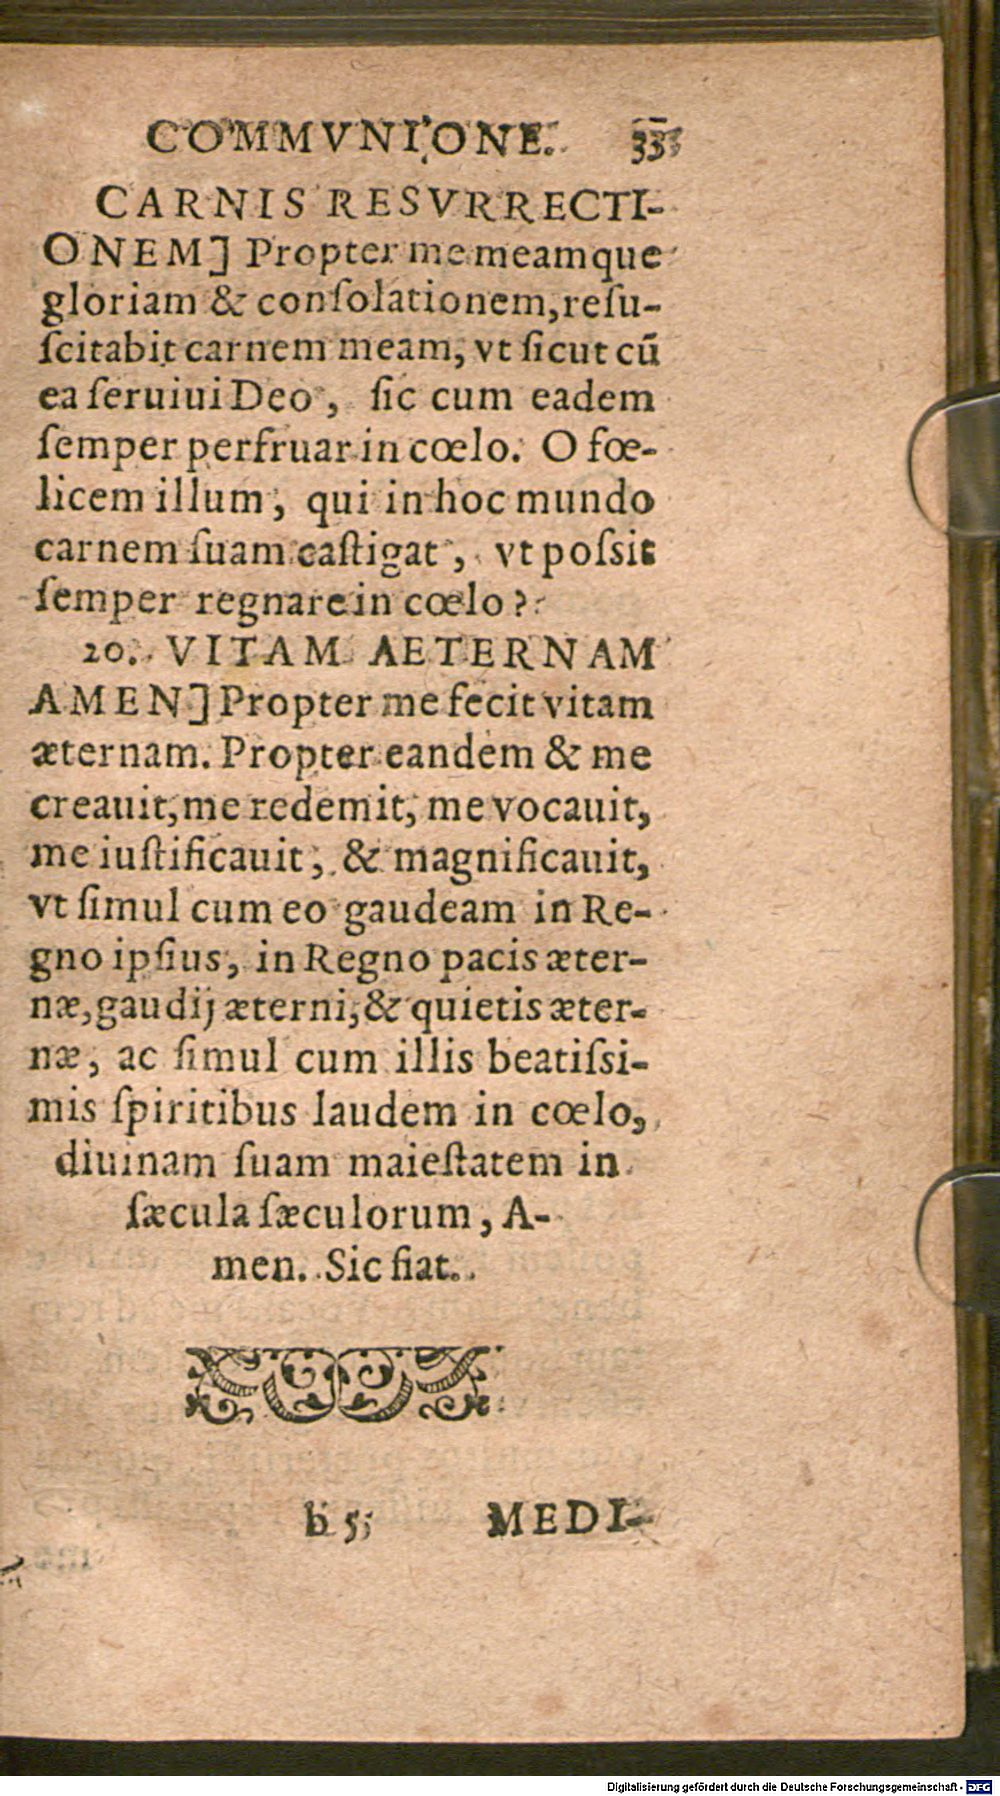 COMMVNIONE. 33
CARNIS RESVRRECTI-
ONEM] Propter me meamque
gloriam & conſolationem, reſu-
ſcitabit carnem meam, vt ſicut cū
ea ſeruiui Deo, ſic cum eadem
ſemper perfruar in cœlo. O fœ-
licem illum, qui in hoc mundo
carnem ſuam caſtigat, vt poſsit
ſemper regnare in cœlo?
20. VITAM AETERNAM
AMEN] Propter me fecit vitam
æternam. Propter eandem & me
creauit, me redemit, me vocauit,
me iuſtificauit, & magnificauit,
vt ſimul cum eo gaudeam in Re-
gno ipſius, in Regno pacis æter-
næ, gaudij æterni, & quietis æter-
næ, ac ſimul cum illis beatiſsi-
mis ſpiritibus laudem in cœlo,
diuinam ſuam maieſtatem in
ſæcula ſæculorum, A-
men. Sic fiat.
b 5 MEDI-
Digitalisierung gefördert durch die Deutsche Forschungsgemeinschaft - DFG